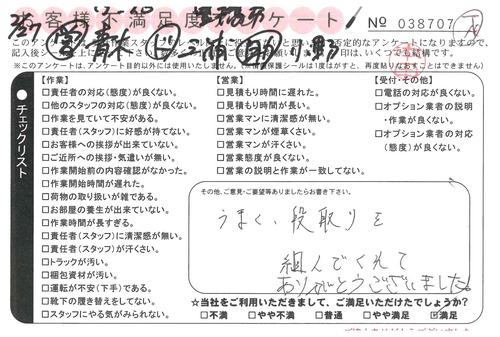 お客様不満足度アンケート!
No 038707
※このアンケートは、アンケート目的以外には使用いたしません。
チェックリスト
【作業】
□責任者の対応(態度)が良くない。
□他のスタッフの対応(態度)が良くない。
□作業を見ていて不安がある。
□責任者(スタッフ)に好感が持てない。
□お客様への挨拶が出来ていない。
□ご近所への挨拶・気遣いが無い。
□作業開始前の内容確認がなかった。
□作業開始時間が遅れた。
□荷物の取り扱いが雑である。
□お部屋の養生が出来ていない。
□作業時間が長すぎる。
□責任者(スタッフ)に清潔感が無い。
□責任者(スタッフ)が汗くさい。
□トラックが汚い。
□梱包資材が汚い。
□運転が不安(下手)である。
□靴下の履き替えをしてない。
□スタッフにやる気がみられない。
【営業】
□見積もり時間に遅れた。
□見積もり時間が長い。
□営業マンに清潔感が無い。
□営業マンが煙草くさい。
□営業マンが汗くさい。
□営業態度が良くない。
□営業の説明と作業が一致してない。
【受付・その他】
□電話の対応が良くない。
□オプション業者の説明
・作業が良くない。
□オプション業者の対応
(態度)が良くない。
その他、ご意見・ご要望等ありましたらお書き下さい。
うまく、段取りを
組んでくれて
ありがとうございました。
☆当社をご利用いただきまして、ご満足いただけたでしょうか?
□不満 □やや不満 □普通 □やや満足 ☑満足